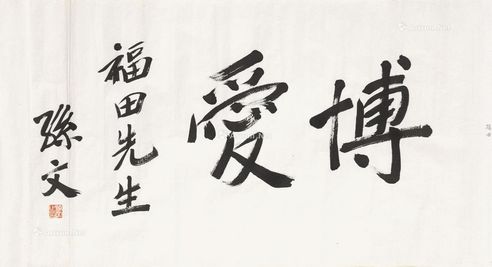 博愛
福田先生
孫文